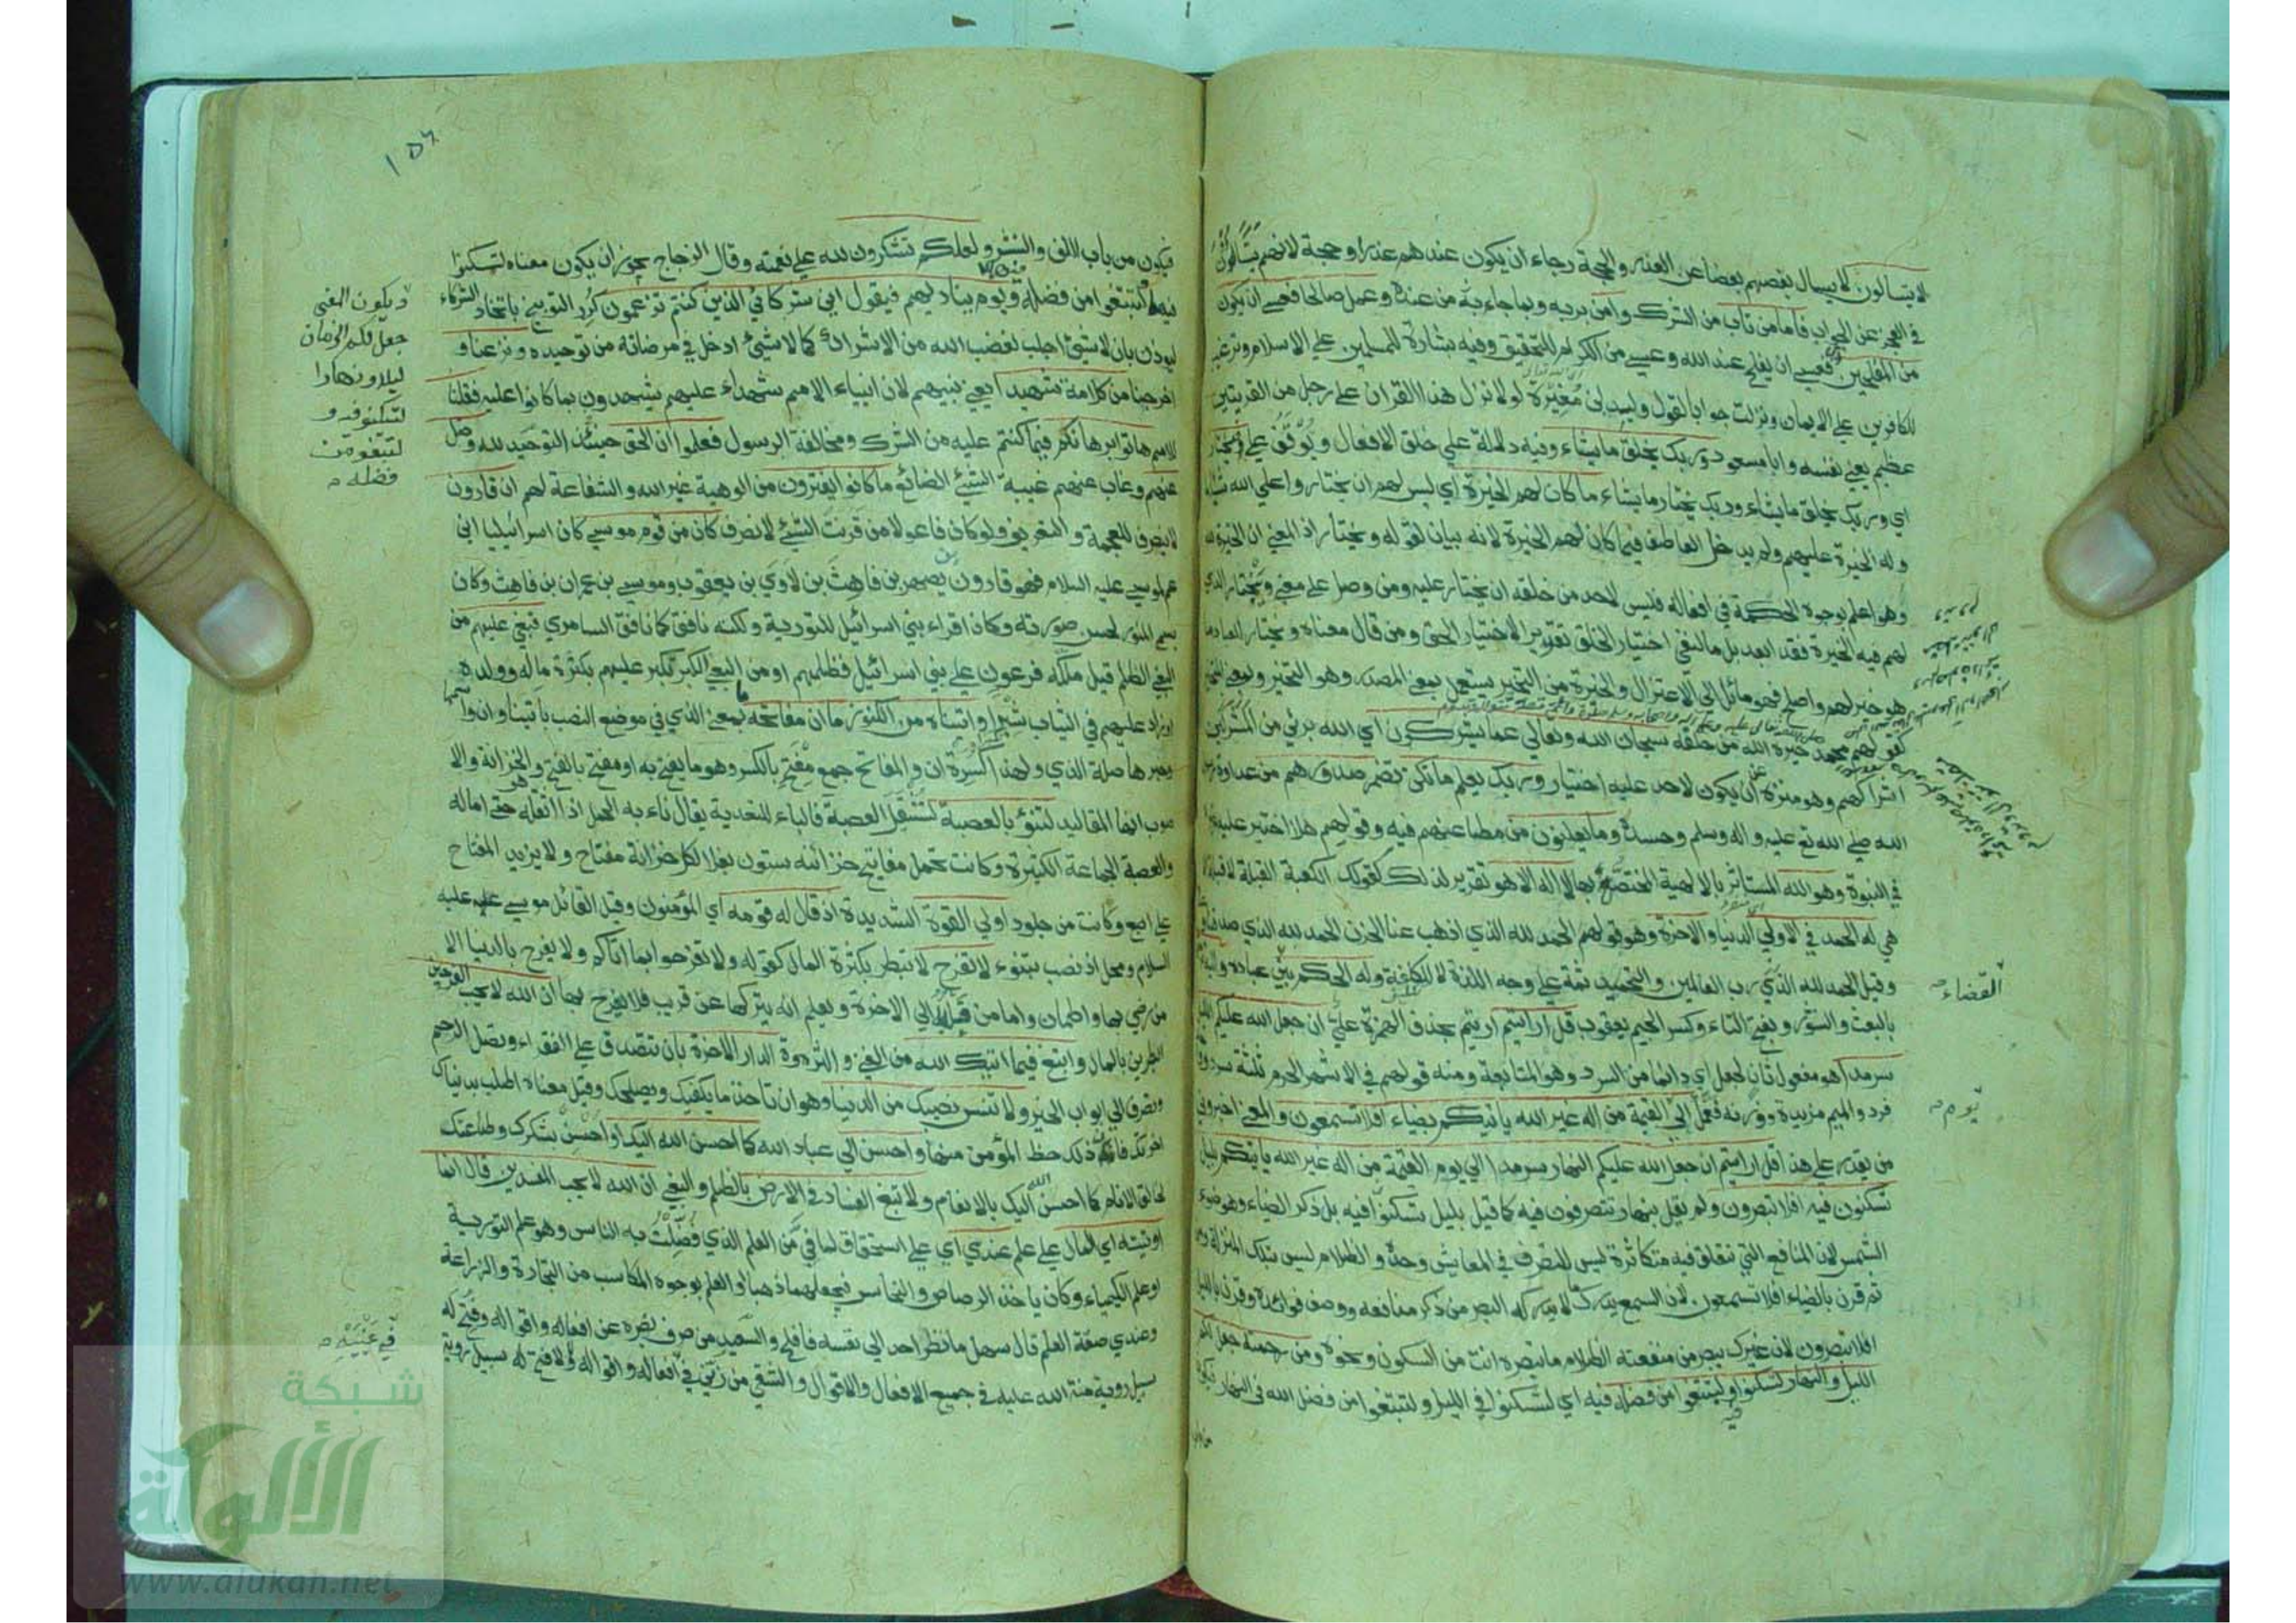 لا يتساءلون لا يسأل بعضهم بعضا عن العذر والحجة رجاء ان يكون عندهم عذر او حجة لانهم يتساوون
في العجز عن الجواب فاما من تاب من الشرك وآمن بربه وبما جاء به من عنده وعمل صالحا فعسى ان يكون
من المفلحين فعسى ان يفلح عند الله وعسى من الكرام للتحقيق وفيه بشارة للمسلمين على الاسلام وترغيب
للكافرين على الايمان ونزلت جوابا لقول وليد بن مغيرة لولا نزل هذا القران على رجل من القريتين
عظيم يعني نفسه وابا مسعود وربك يخلق ما يشاء وفيه دلالة على خلق الافعال ويوقف على ويختار
اي وربك يخلق ما يشاء وربك يختار ما يشاء ما كان لهم الخيرة اي ليس لهم ان يختاروا على الله شيئا
وله الخيرة عليهم ولم يدخل العاطف في ما كان لهم الخيرة لانه بيان لقوله ويختار اذ المعنى ان الخيرة لله
وهو اعلم بوجوه الحكمة في افعاله فليس لاحد من خلقه ان يختار عليه ومن وصل على معنى ويختار الذي
لهم فيه الخيرة فقد ابعد بل ما لنفي اختيار الخلق تقرير الاختيار الحق ومن قال معناه ويختار للعباد ما
هو خير لهم واصلح فهو مائل الى الاعتزال والخيرة من التخير يستعمل بمعنى المصدر وهو التخير وبمعنى المتخير
كقولهم محمد خيرة الله من خلقه سبحان الله وتعالى عما يشركون اي الله بريء من
اشراكهم وهو منزه عن ان يكون لاحد عليه اختيار وربك يعلم ما تكن تضمر صدورهم من عداوة رسول
الله صلى الله تع عليه واله وسلم وحسده وما يعلنون من مطاعنهم فيه وقولهم هلا اختير عليه غيره
في النبوة وهو الله المستأثر بالالهية المختص بها لا اله الا هو تقرير لذلك كقولك الكعبة القبلة لا قبلة الا
هي له الحمد في الاولى الدنيا والاخرة وهو قولهم الحمد لله الذي اذهب عنا الحزن الحمد لله الذي صدقنا وعده
وقيل الحمد لله رب العالمين والتحميد ثمة على وجه اللذة لا الكلفة وله الحكم بين عباده واليه ترجعون
بالبعث والنشور وبفتح التاء وكسر الجيم يعقوب قل ارأيتم اريتم بحذف الهمزة علي ان جعل الله عليكم الليل
سرمدا هو مفعول ثان لجعل اي دائما من السرد وهو المتابعة ومنه قولهم في الاشهر الحرم ثلثة سرد وواحد
فرد والميم مزيدة ووزنه فعمل الى القيمة من اله غير الله يأتيكم بضياء افلا تسمعون والمعنى اخبروني
من يقدر على هذا قل ارأيتم ان جعل الله عليكم النهار سرمدا الى يوم القيمة من اله غير الله يأتيكم بليل
تسكنون فيه افلا تبصرون ولم يقل بنهار تتصرفون فيه كما قيل بليل تسكنون فيه بل ذكر الضياء وهو ضوء
الشمس لان المنافع التي تتعلق به متكاثرة ليس التصرف في المعايش وحده والظلام ليس بتلك المنزلة ومن
ثم قرن بالضياء افلا تسمعون لان السمع يدرك ما لا يدركه البصر من ذكر منافعه ووصف فوائده وقرن بالليل
افلا تبصرون لان غيرك يبصر من منفعته الظلام ما تبصره انت من السكون ونحوه ومن رحمته جعل لكم
الليل والنهار لتسكنوا فيه ولتبتغوا من فضله اي لتسكنوا في الليل ولتبتغوا من فضل الله في النهار فيكون
القضاء
يوم
١٥٤
فيكون من باب اللف والنشر ولعلكم تشكرون لله على نعمته وقال الزجاج يجوز ان يكون معناه لتسكنوا
فيهما ولتبتغوا من فضله ويوم يناديهم فيقول اين شركائي الذين كنتم تزعمون كرر التوبيخ باتخاذ الشركاء
ليوذن بان لا شيئ اجلب لغضب الله من الاشراك كما لا شيئ ادخل في مرضاته من توحيده ونزعنا و
اخرجنا من كل امة شهيدا يعني نبيهم لان انبياء الامم شهداء عليهم يشهدون بما كانوا عليه فقلنا
للامم هاتوا برهانكم فيما كنتم عليه من الشرك ومخالفة الرسول فعلموا ان الحق حينئذ التوحيد لله وضل
عنهم وغاب عنهم غيبة الشيئ الضائع ما كانوا يفترون من الوهية غير الله والشفاعة لهم ان قارون
لا ينصرف للعجمة والتعريف ولو كان فاعولا من قرنت الشيئ لانصرف كان من قوم موسى كان اسرائيليا ابن
عم لموسى عليه السلام فهو قارون بن يصهر بن قاهث بن لاوي بن يعقوب وموسى بن عمران بن قاهث وكان
يسمى المنور لحسن صورته وكان اقرأ بني اسرائيل للتورية ولكنه نافق كما نافق السامري فبغى عليهم من
البغي الظلم قيل ملكه فرعون على بني اسرائيل فظلمهم او من البغي الكبر تكبر عليهم بكثرة ماله وولده
او زاد عليهم في الثياب شبرا واتيناه من الكنوز ما ان مفاتحه ما بمعنى الذي في موضع النصب باتينا وان واسمها
وخبرها صلة الذي ولهذا كسرت ان والمفاتح جمع مفتح بالكسر وهو ما يفتح به او مفتح بالفتح وهو الخزانة والا
صوب انها المقاليد لتنوء بالعصبة لتثقل العصبة فالباء للتعدية يقال ناء به الحمل اذا اثقله حتى اماله
والعصبة الجماعة الكثيرة وكانت تحمل مفاتيح خزائنه ستون بغلا لكل خزانة مفتاح ولا يزيد المفتاح
على اصبع وكانت من جلود اولي القوة الشديدة اذ قال له قومه اي المؤمنون وقيل القائل موسى عليه
السلام ومحل اذ نصب بتنوء لا تفرح لا تبطر بكثرة المال كقوله ولا تفرحوا بما اتاكم ولا يفرح بالدنيا الا
من رضي بها واطمأن واما من قلبه الى الاخرة ويعلم انه يتركها عن قريب فلا يفرح بها ان الله لا يحب الفرحين
البطرين بالمال وابتغ فيما اتيك الله من الغنى والثروة الدار الاخرة بان تتصدق على الفقراء وتصل الرحم
وتصرف الى ابواب الخير ولا تنس نصيبك من الدنيا وهو ان تاخذ ما يكفيك ويصلحك وقيل معناه اطلب بدنياك
اخرتك فان ذلك حظ المؤمن منها واحسن الى عباد الله كما احسن الله اليك او احسن بشكرك وطاعتك
لخالق الانام كما احسن الله اليك بالانعام ولا تبغ الفساد في الارض بالظلم والبغي ان الله لا يحب المفسدين قال انما
اوتيته اي المال على علم عندي اي على استحقاق لما في من العلم الذي فضلت به الناس وهو علم التورية
او علم الكيمياء وكان ياخذ الرصاص والنحاس فيجعلهما ذهبا او العلم بوجوه المكاسب من التجارة والزراعة
وعندي صفة العلم قال سهل ما نظر احد الى نفسه فافلح والسعيد من صرف بصره عن افعاله واقواله وفتح له
سبيل روية منة الله عليه في جميع الافعال والاقوال والشقي من زين في افعاله واقواله ولا فتح له سبيل روية
ويكون المعنى
جعل لكم الزمان
ليلا ونهارا
لتسكنوا فيه و
لتبتغوا من
فضله
في عينيه
شبكة
الألوكة
www.alukah.net